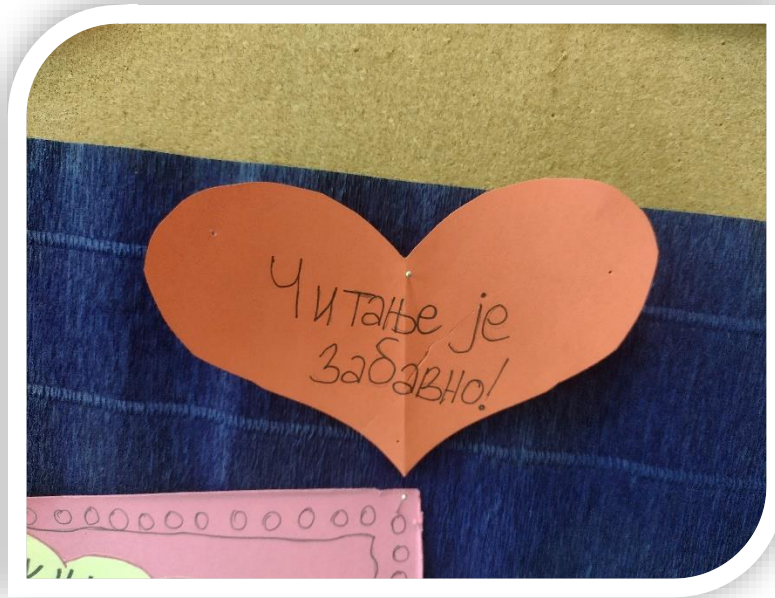 Читање је
забавно!